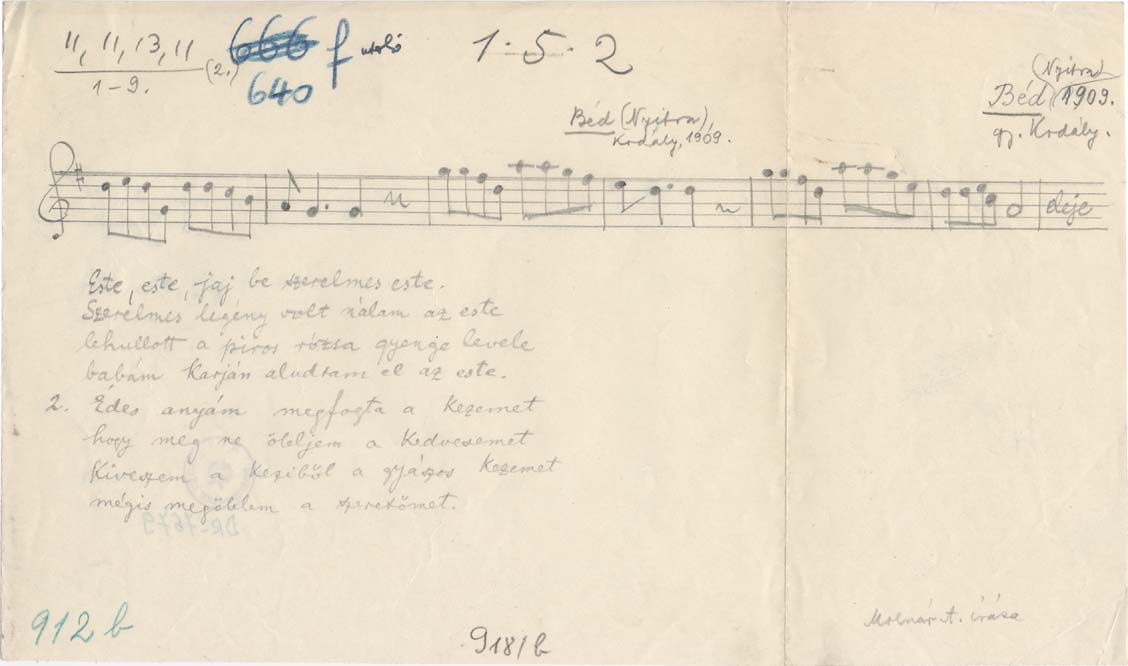 11, 11, 13, 11
1-9.
(2.)
666 f utolsó
640
1·5·2
Béd (Nyitra),
Kodály, 1909.
(Nyitra)
Béd 1909.
gy. Kodály.
eleje
Este, este, jaj be szerelmes este.
Szerelmes legény volt nálam az este
lehullott a piros rózsa gyenge levele
babám karján aludtam el az este.
2. Édes anyám megfogta a kezemet
hogy meg ne öleljem a kedvesemet
Kiveszem a keziből a gyászos kezemet
mégis megölelem a szeretőmet.
912 b
918/b
Molnár A. írása